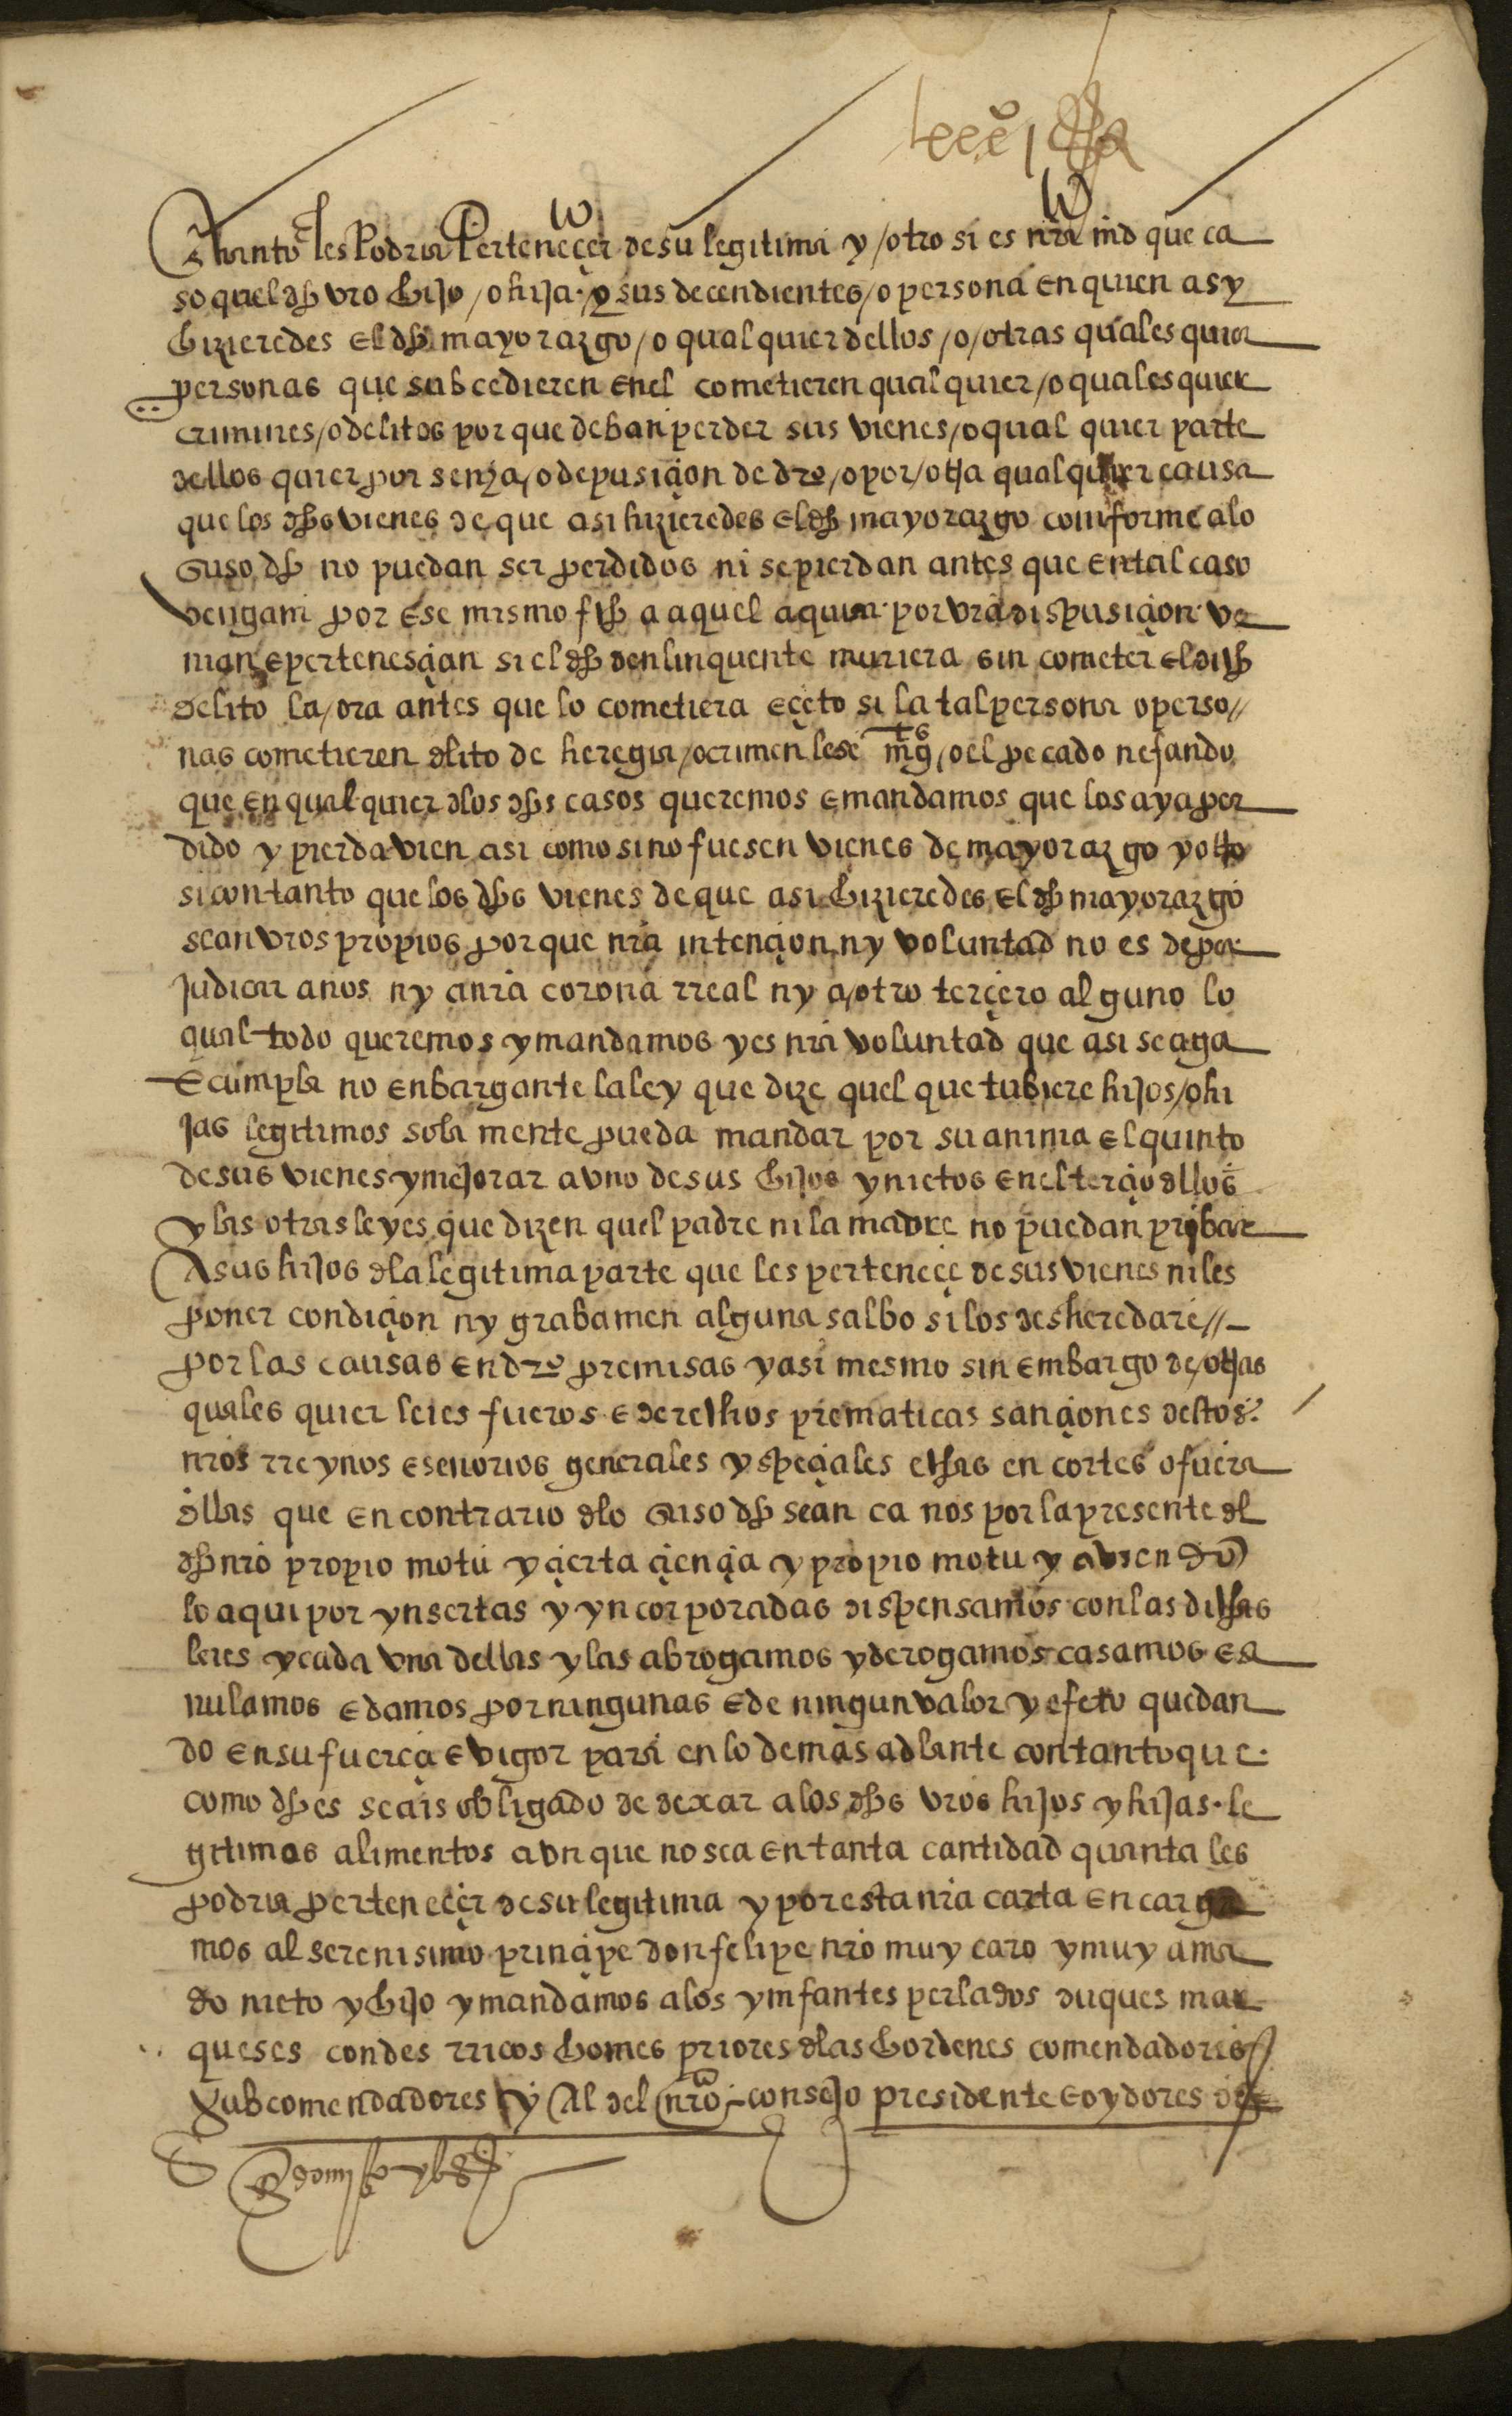 quanto les Podria Perteneçer de su legitima y /otro si es nra md que ca
so quel dho vro hijo /o hija· y sus decendientes /o persona en quien asy
hizieredes el dho mayorazgo /o qualquier dellos /o /otras quales quier
personas que subcedieren enel cometieren qual quier /o quales quier
crimines /o delitos por que deban perder sus vienes /o qual quier parte
dellos quier por senzia /o depusiçion de dro /o por /otra qualquier causa
que los dhos vienes de que asi hizieredes el dho mayorazgo comforme a lo
suso dho no puedan ser perdidos ni se pierdan antes que en tal caso
vengam por ese mismo fho a aquel a quien por vra dispusiçion ve
nian e pertenesçian si el dho denlinquente muriera sin cometer el diho
delito la /ora antes que lo cometiera eçeto si la tal persona o perso//
nas cometieren dlito de heregia /o crimen lese mgts /o el pecado nefando
que en qual quier dlos dhos casos queremos e mandamos que los aya per
dido y pierda vien asi como si no fuesen vienes de mayorazgo y otro
si con tanto que los dhos vienes de que asi hizieredes el dho mayorazgo
sean vros propios por que nra intençion ny voluntad no es de per
judicar a nos ny a nra corona rreal ny a /otro terçero alguno lo
qual todo queremos y mandamos y es nra voluntad que asi se aga
e cumpla no enbargante la ley que dize quel que tubiere hijos /o hi
jas legitimos sola mente pueda mandar por su anima el quinto
de sus vienes y mejorar a vno de sus hijos y nietos en el terçio dllos
y las otras leyes que dizen quel padre ni la madre no puedan pribar
A sus hijos dla legitima parte que les perteneçe de sus vienes ni les
poner condiçion ny grabamen alguna salbo si los desheredare //
por las causas en dro premisas y asi mesmo sin embargo de /otras
quales quier leies fueros e derechos prematicas sançiones destos
nros rreynos e senorios generales y speçiales echas en cortes o fuera
dllas que en contrario dlo suso dho sean ca nos por la presente dl
dho nro propio motu y çierta çiençia y propio motu y aviendo
lo aqui por ynsertas y yncorporadas dispensamos con las dichas
leies y cada vna dellas y las abrogamos y derogamos casamos e a
nulamos e damos por ningunas e de ningun valor y efeto quedan
do en su fuerça e vigor para en lo demas adlante con tanto que·
como dho es seais obligado de dexar a los dhos vros hijos y hijas· le
gitimos alimentos avn que no sea en tanta cantidad quanta les
podria perteneçer de su legitima y por esta nra carta encarga
mos al serenisimo prinçipe don felipe nro muy caro y muy ama
do nieto y hijo y mandamos a los ymfantes perlados duques mar
queses condes rricos homes priores dlas hordenes comendadores
y subcomendadores y Al del nro consejo presidente e oydores de